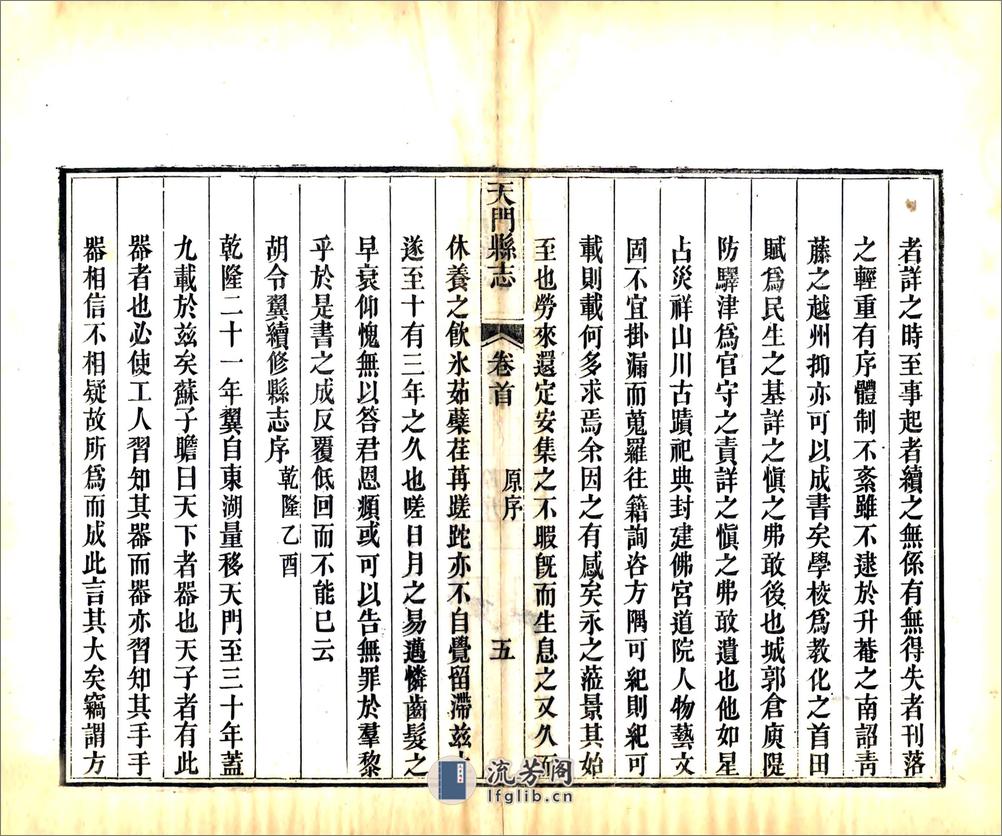 者詳之時至事起者續之無係有無得失者刊落
之輕重有序體制不紊雖不逮於升菴之南詔靑
藤之越州抑亦可以成書矣學校爲教化之首田
賦爲民生之基詳之愼之弗敢後也城郭倉庾隄
防驛津爲官守之責詳之愼之弗敢遺也他如星
占災祥山川古蹟祀典封建佛宮道院人物藝文
固不宜掛漏而蒐羅往籍詢咨方隅可紀則紀可
載則載何多求焉余因之有感矣永之蒞景其始
至也勞來還定安集之不暇旣而生息之又久
天門縣志
卷首
原序
五
休養之飮氷茹蘗荏苒蹉跎亦不自覺留滯兹
遂至十有三年之久也嗟日月之易邁憐齒髮之
早衰仰愧無以答君恩頫或可以告無罪於羣黎
乎於是書之成反覆低回而不能已云
胡令翼續修縣志序 乾隆乙酉
乾隆二十一年翼自東湖量移天門至三十年蓋
九載於兹矣蘇子瞻曰天下者器也天子者有此
器者也必使工人習知其器而器亦習知其手手
器相信不相疑故所爲而成此言其大矣竊謂方
流芳阁
lfglib.cn